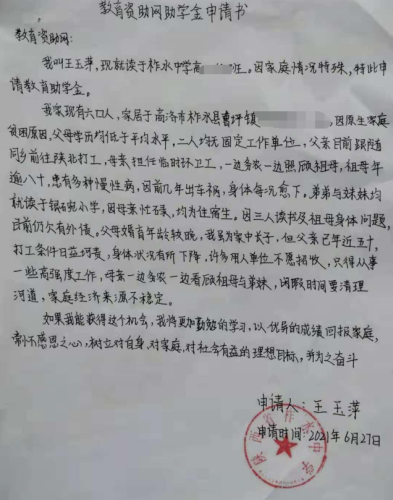 教育资助网助学金申请书
教育资助网:
我叫王玉萍,现就读于柞水中学高 班。因家庭情况特殊,特此申
请教育助学金。
我家现有六口人,家居于商洛市柞水县曹坪镇 因原生家庭
贫困原因,父母学历均低于平均水平,二人均无固定工作单位,父亲目前跟随
同乡前往陕北打工,母亲担任临时环卫工,一边务农一边照顾祖母,祖母年
逾八十,患有多种慢性病,因前几年出车祸,身体每况愈下。弟弟与妹妹均
就读于银碗小学,因母亲忙碌,均为住宿生。因三人读书及祖母身体问题,
目前仍欠有外债。父母婚育年龄较晚,我虽为家中长子,但父亲已年近五十,
打工条件日益苛责,身体状况有所下降,许多用人单位不愿招收,只得从事
一些高强度工作,母亲一边务农一边看顾祖母与弟妹,闲暇时间要清理
河道,家庭经济来源不稳定。
如果我能获得这个机会,我将更加勤勉的学习,以优异的成绩回报家庭,
常怀感恩之心,树立对自身、对家庭、对社会有益的理想目标,并为之奋斗
申请人:王玉萍
申请时间:2021年6月27日
陕西省柞水中学